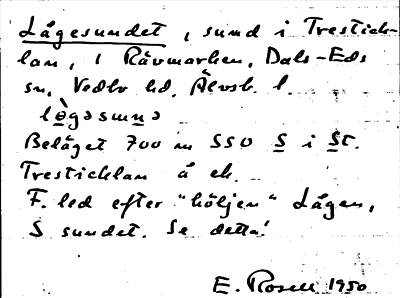 Lågesundet, sund i Trestick-
lan, i Rävmarken, Dals-Eds
sn, Vedbo hd, Älvsb. l.
lògəsunə
Beläget 700 m SSO S i St.
Tresticklan å ek.
F. led efter "höljen" Lågen,
S sundet. Se detta!
E. Rosell 1950